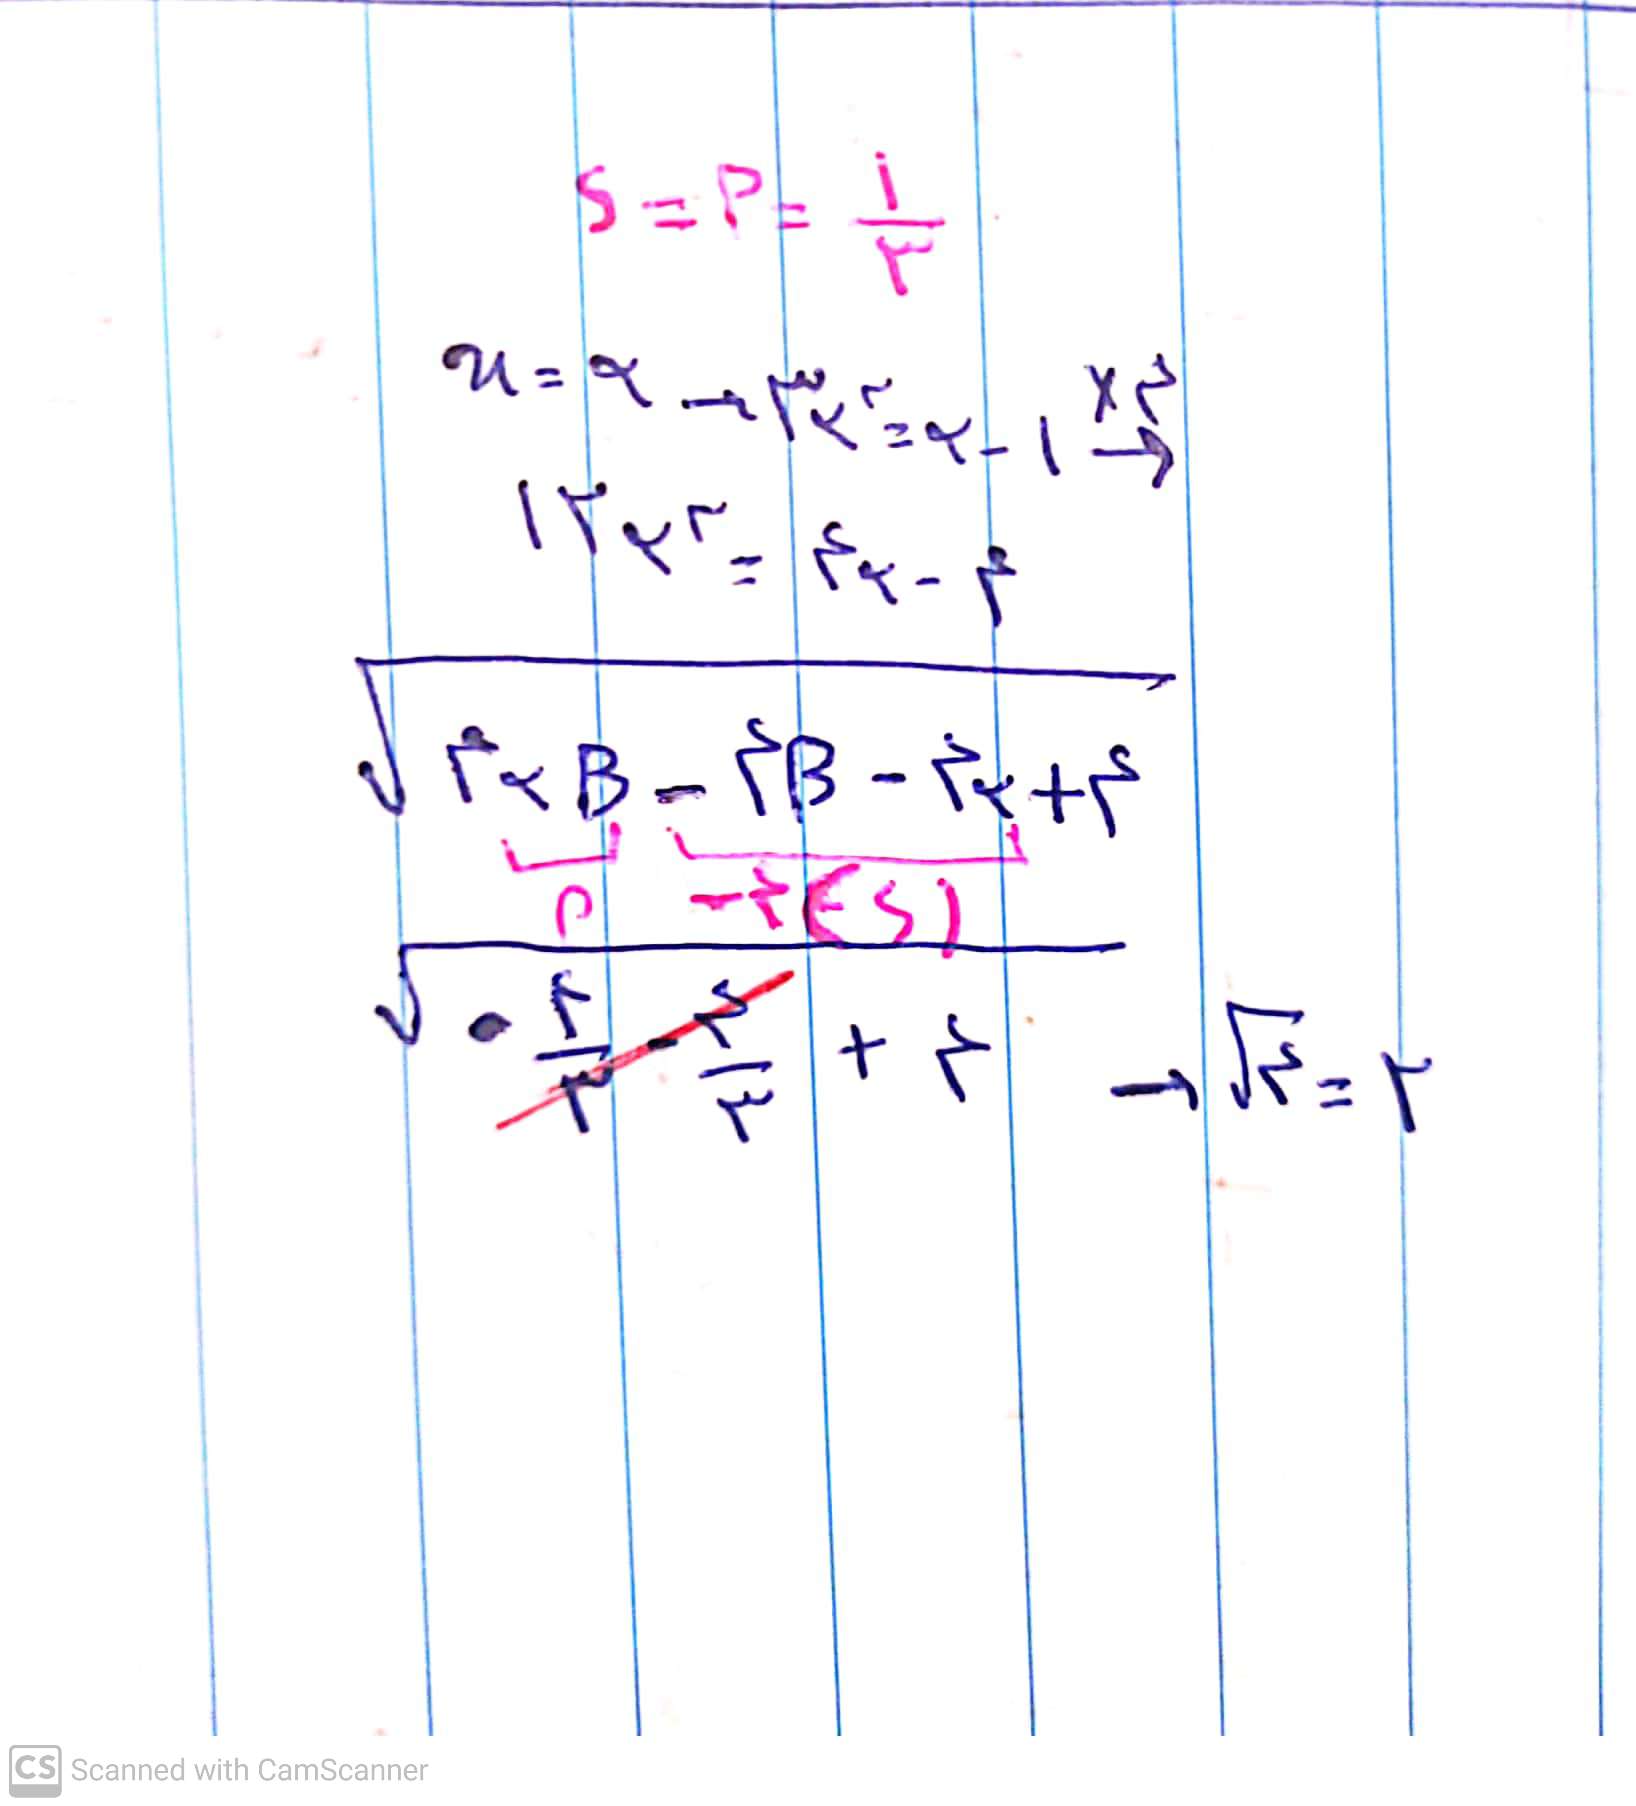 S = P = ۱/۳
x = α → ۳α^۲ = α - ۱ ×۴→
۱۲α^۲ = ۴α - ۴
√(۴αB - ۴B - ۴α + ۴)
P -۴(S)
√(۴/۳ - ۴/۳ + ۴) → √۴ = ۲
CS Scanned with CamScanner